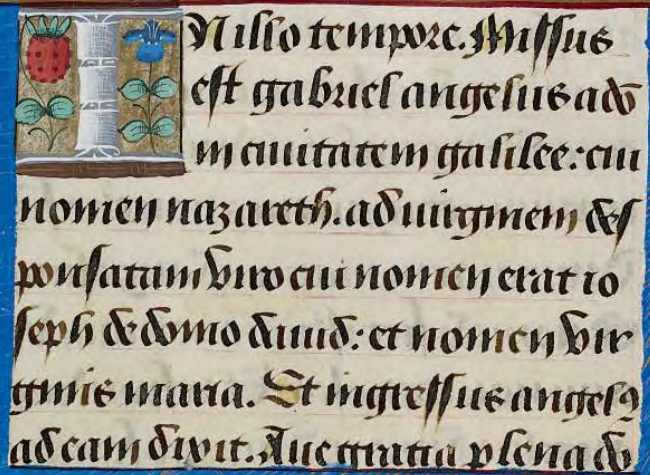 IN illo tempore. Missus
est gabriel angelus a dō
in ciuitatem galilee: cui
nomen nazareth. ad uirginem des
ponsatam viro cui nomen erat io
seph de domo dauid: et nomen vir
ginis maria. Et ingressus angelꝯ
ad eam dixit. Aue gratia plena dō